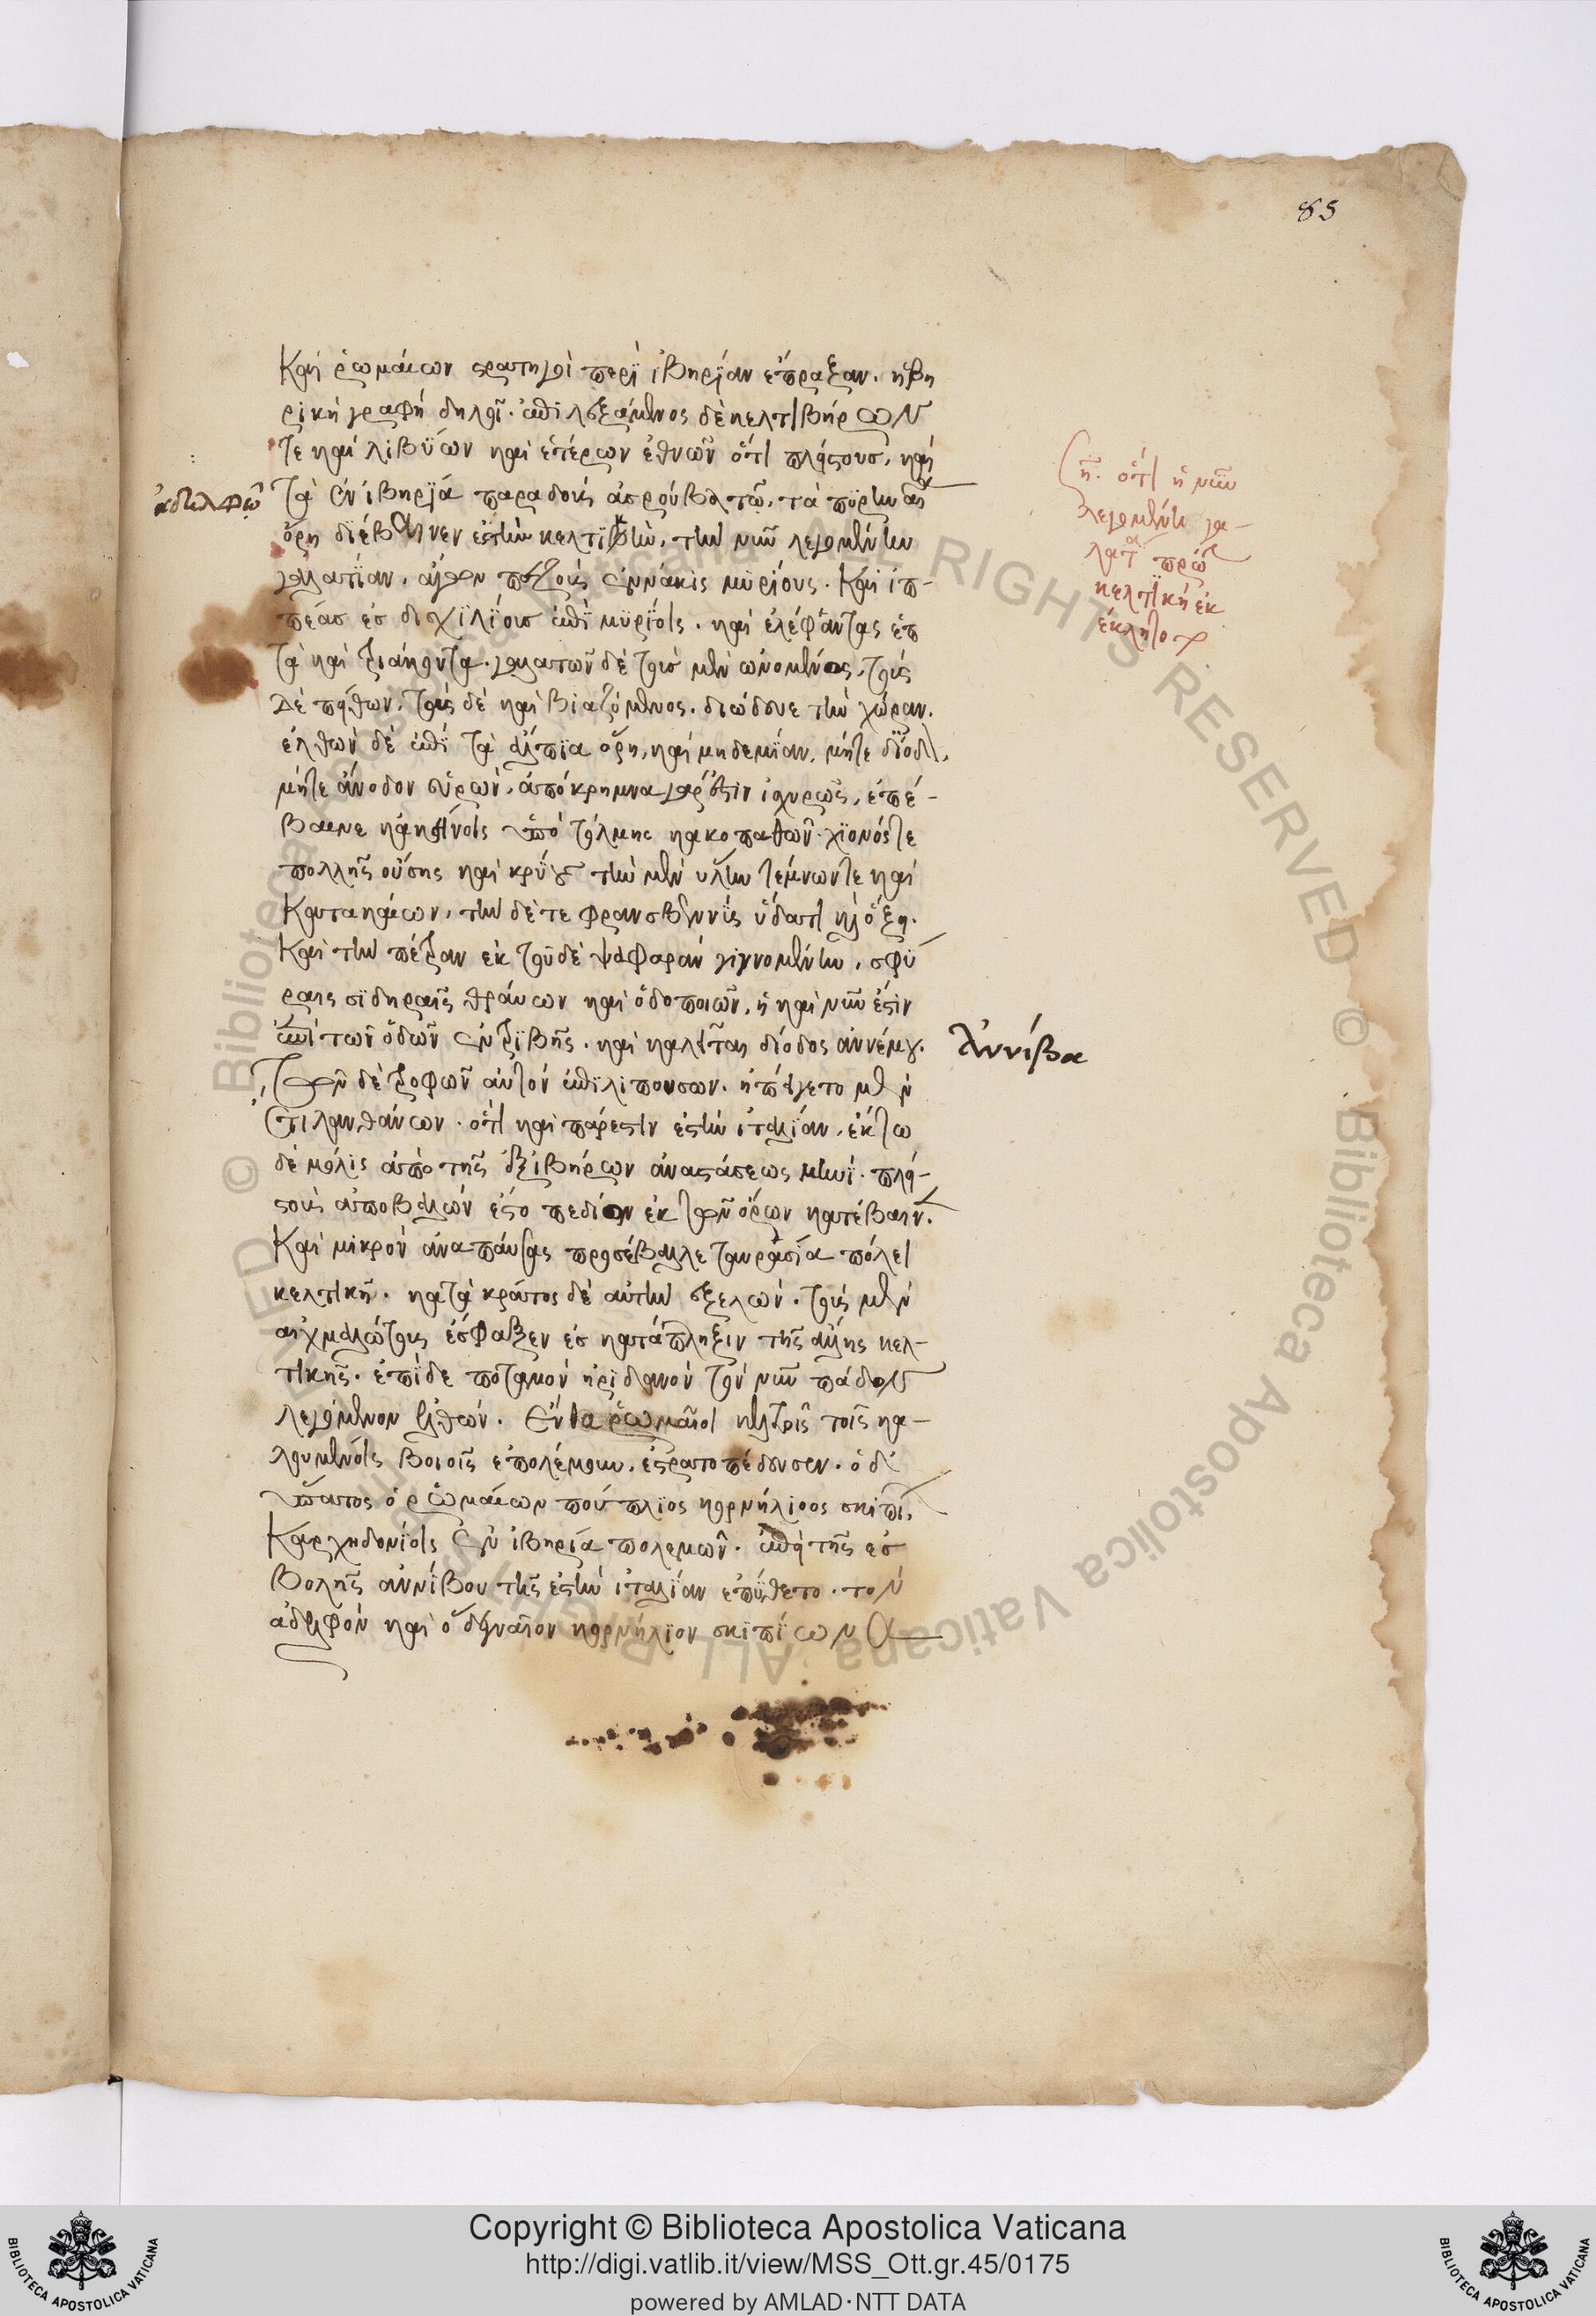 85
καὶ ῥωμαίων στρατηγοὶ περὶ ἰβηρίαν ἔπραξαν. ἡ ἰβη
ρικὴ γραφὴ δηλοῖ. ἐπιλεξάμενος δὲ κελτιβήρων
τε καὶ λιβύων καὶ ἑτέρων ἐθνῶν ὅτι πλείστους, καὶ
τὰ ἐν ἰβηρίᾳ παραδοὺς ἀσρούβᾳ τῷ, τὰ πυρηναῖα
ἀδελφῷ
ὄρη διέβαινεν ἐς τὴν κελτικὴν, τὴν νῦν λεγομένην
γαλατίαν, ἄγων πεζοὺς ἐννάκις μυρίους. καὶ ἱπ-
πέας ἐς δισχιλίους ἐπὶ μυρίοις. καὶ ἐλέφαντας ἑπ
τὰ καὶ τριάκοντα. γαλατῶν δὲ τοὺς μὲν ὠνούμενος, τοὺς
δὲ πείθων, τοὺς δὲ καὶ βιαζόμενος. διώδευε τὴν χώραν.
ἐλθὼν δὲ ἐπὶ τὰ ἄλπια ὄρη, καὶ μηδεμίαν, μήτε δίοδον,
μήτε ἄνοδον εὑρὼν, ἀπόκρημνα γάρ ἐστιν ἰσχυρῶς, ἐπέ-
βαινε κἀκείνοις ὑπὸ τόλμης κακοπαθῶν. χιόνος τε
πολλῆς οὔσης καὶ κρύους τὴν μὲν ὕλην τέμνων τε καὶ
κατακαίων, τὴν δὲ τέφραν σβεννὺς ὕδατι καὶ ὄξει.
καὶ τὴν πέτραν ἐκ τοῦδε ψαφαρὰν γιγνομένην, σφύ
ραις σιδηραῖς θραύων καὶ ὁδοποιῶν, ἣ καὶ νῦν ἐστὶν
ἐπὶ τῶν ὁδῶν ἐντριβὴς. καὶ καλεῖται δίοδος ἀννίβου.
Ἀννίβα
τῶν δὲ τροφῶν αὐτὸν ἐπιλιπουσῶν. ἠπείγετο μὲν
ἔτι λανθάνων. ὅτι καὶ πάρεστιν ἐς τὴν ἰταλίαν, ἕκτῳ
δὲ μόλις ἀπὸ τῆς ἐξ ἰβήρων ἀναστάσεως μηνὶ. πλεί-
στους ἀποβαλὼν ἐς τὸ πεδίον ἐκ τῶν ὀρῶν κατέβαινε.
καὶ μικρὸν ἀναπαύσας προσέβαλε ταυρασίᾳ πόλει
κελτικῇ. κατὰ κράτος δὲ αὐτὴν ἐξελὼν. τοὺς μὲν
αἰχμαλώτους ἔσφαξεν ἐς κατάπληξιν τῆς ἄλλης κελ-
τικῆς. ἐπὶ δὲ ποταμὸν ἠριδανὸν τὸν νῦν πάδον
λεγόμενον ἐλθών. ἔνθα ῥωμαῖοι κελτοῖς τοῖς κα-
λουμένοις βοιοῖς ἐπολέμουν, ἐστρατοπέδευσεν. ὁ δὲ
ὕπατος ὁ ῥωμαίων πούπλιος κορνήλιος σκιπίων
καρχηδονίοις ἐν ἰβηρίᾳ πολεμῶν. ἐπεὶ τῆς ἐσ
βολῆς ἀννίβου τῆς ἐς τὴν ἰταλίαν ἐπύθετο. τὸν
ἀδελφὸν καὶ ὅδε γναῖον κορνήλιον σκιπίωνα
ὅτι ἡ νῦν
λεγομένη γα-
λατία πρῶτον
κελτικὴ ἐκ
Copyright © Biblioteca Apostolica Vaticana
http://digi.vatlib.it/view/MSS_Ott.gr.45/0175
powered by AMLAD·NTT DATA